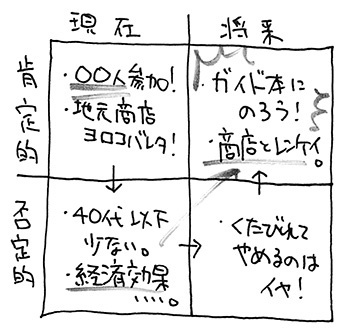 現在
将来
肯定的
・〇〇人参加!
・地元商店
ヨロコバレタ!
・ガイド本に
のろう!
・商店とレンケイ。
否定的
・40代以下
少ない。
・経済効果
・・・・・。
・くたびれて
やめるのは
イヤ!